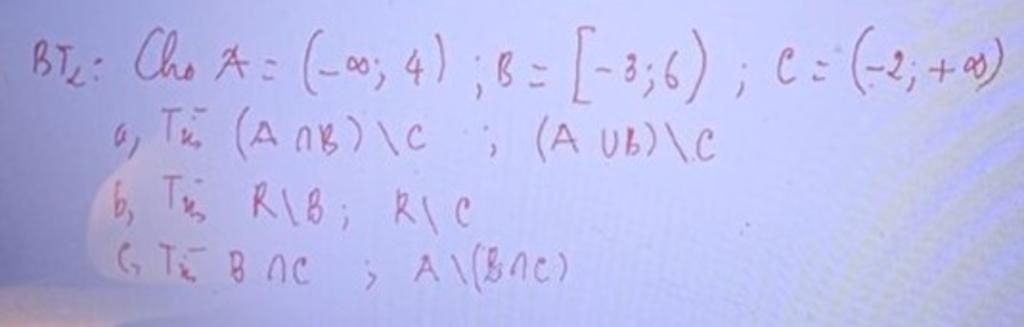 BT2: Cho A = (-∞; 4) ; B = [-3; 6) ; C = (-2; +∞)
a, Tìm (A ∩ B) \ C ; (A ∪ B) \ C
b, Tìm R \ B ; R \ C
c, Tìm B ∩ C ; A \ (B ∩ C)